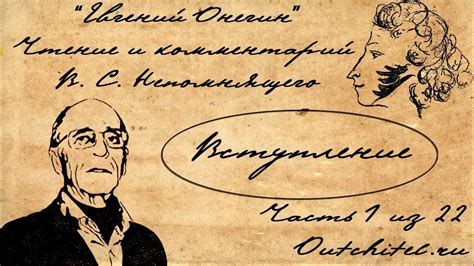 "Евгений Онегин"
Чтение и комментарий
В. С. Непомнящего
Вступление
Часть 1 из 22
Outchitel.ru